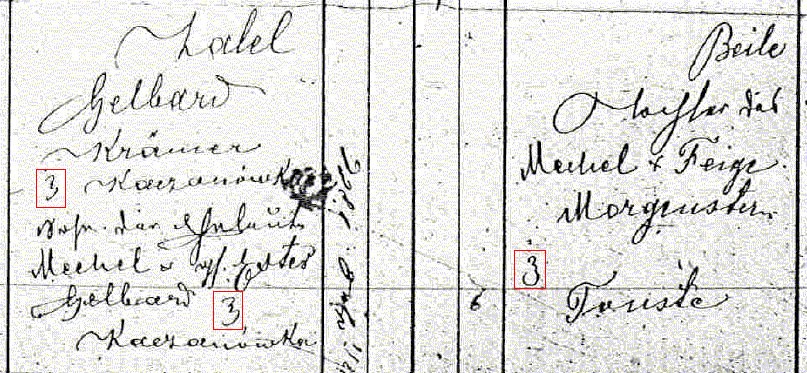 Gelbard
Krämer
3 Kaczanówka
Sohn der Eheleute
Mechel &
Gelbard 3
Kaczanówka
1866
6
Beile
Tochter des
Mechel & Feige
Morgenstern
3
Touste